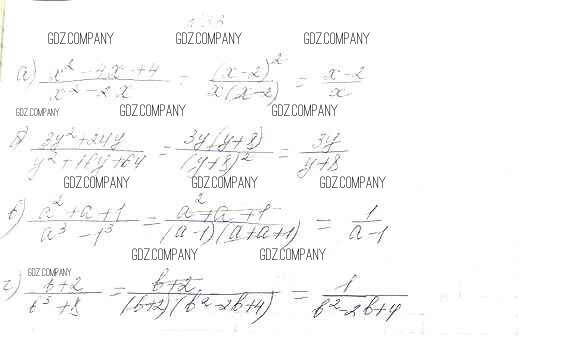 GDZ.COMPANY GDZ.COMPANY GDZ.COMPANY
а) (x² - 4x + 4)/(x² - 2x) = (x-2)²/(x(x-2)) = (x-2)/x
GDZ.COMPANY GDZ.COMPANY GDZ.COMPANY
б) (3y² + 24y)/(y² + 16y + 64) = 3y(y+8)/(y+8)² = 3y/(y+8)
GDZ.COMPANY GDZ.COMPANY GDZ.COMPANY
в) (a² + a + 1)/(a³ - 1³) = (a² + a + 1)/((a-1)(a+a+1)) = 1/(a-1)
GDZ.COMPANY GDZ.COMPANY
GDZ.COMPANY
г) (b+2)/(b³ + 8) = (b+2)/((b+2)(b² - 2b + 4)) = 1/(b² - 2b + 4)